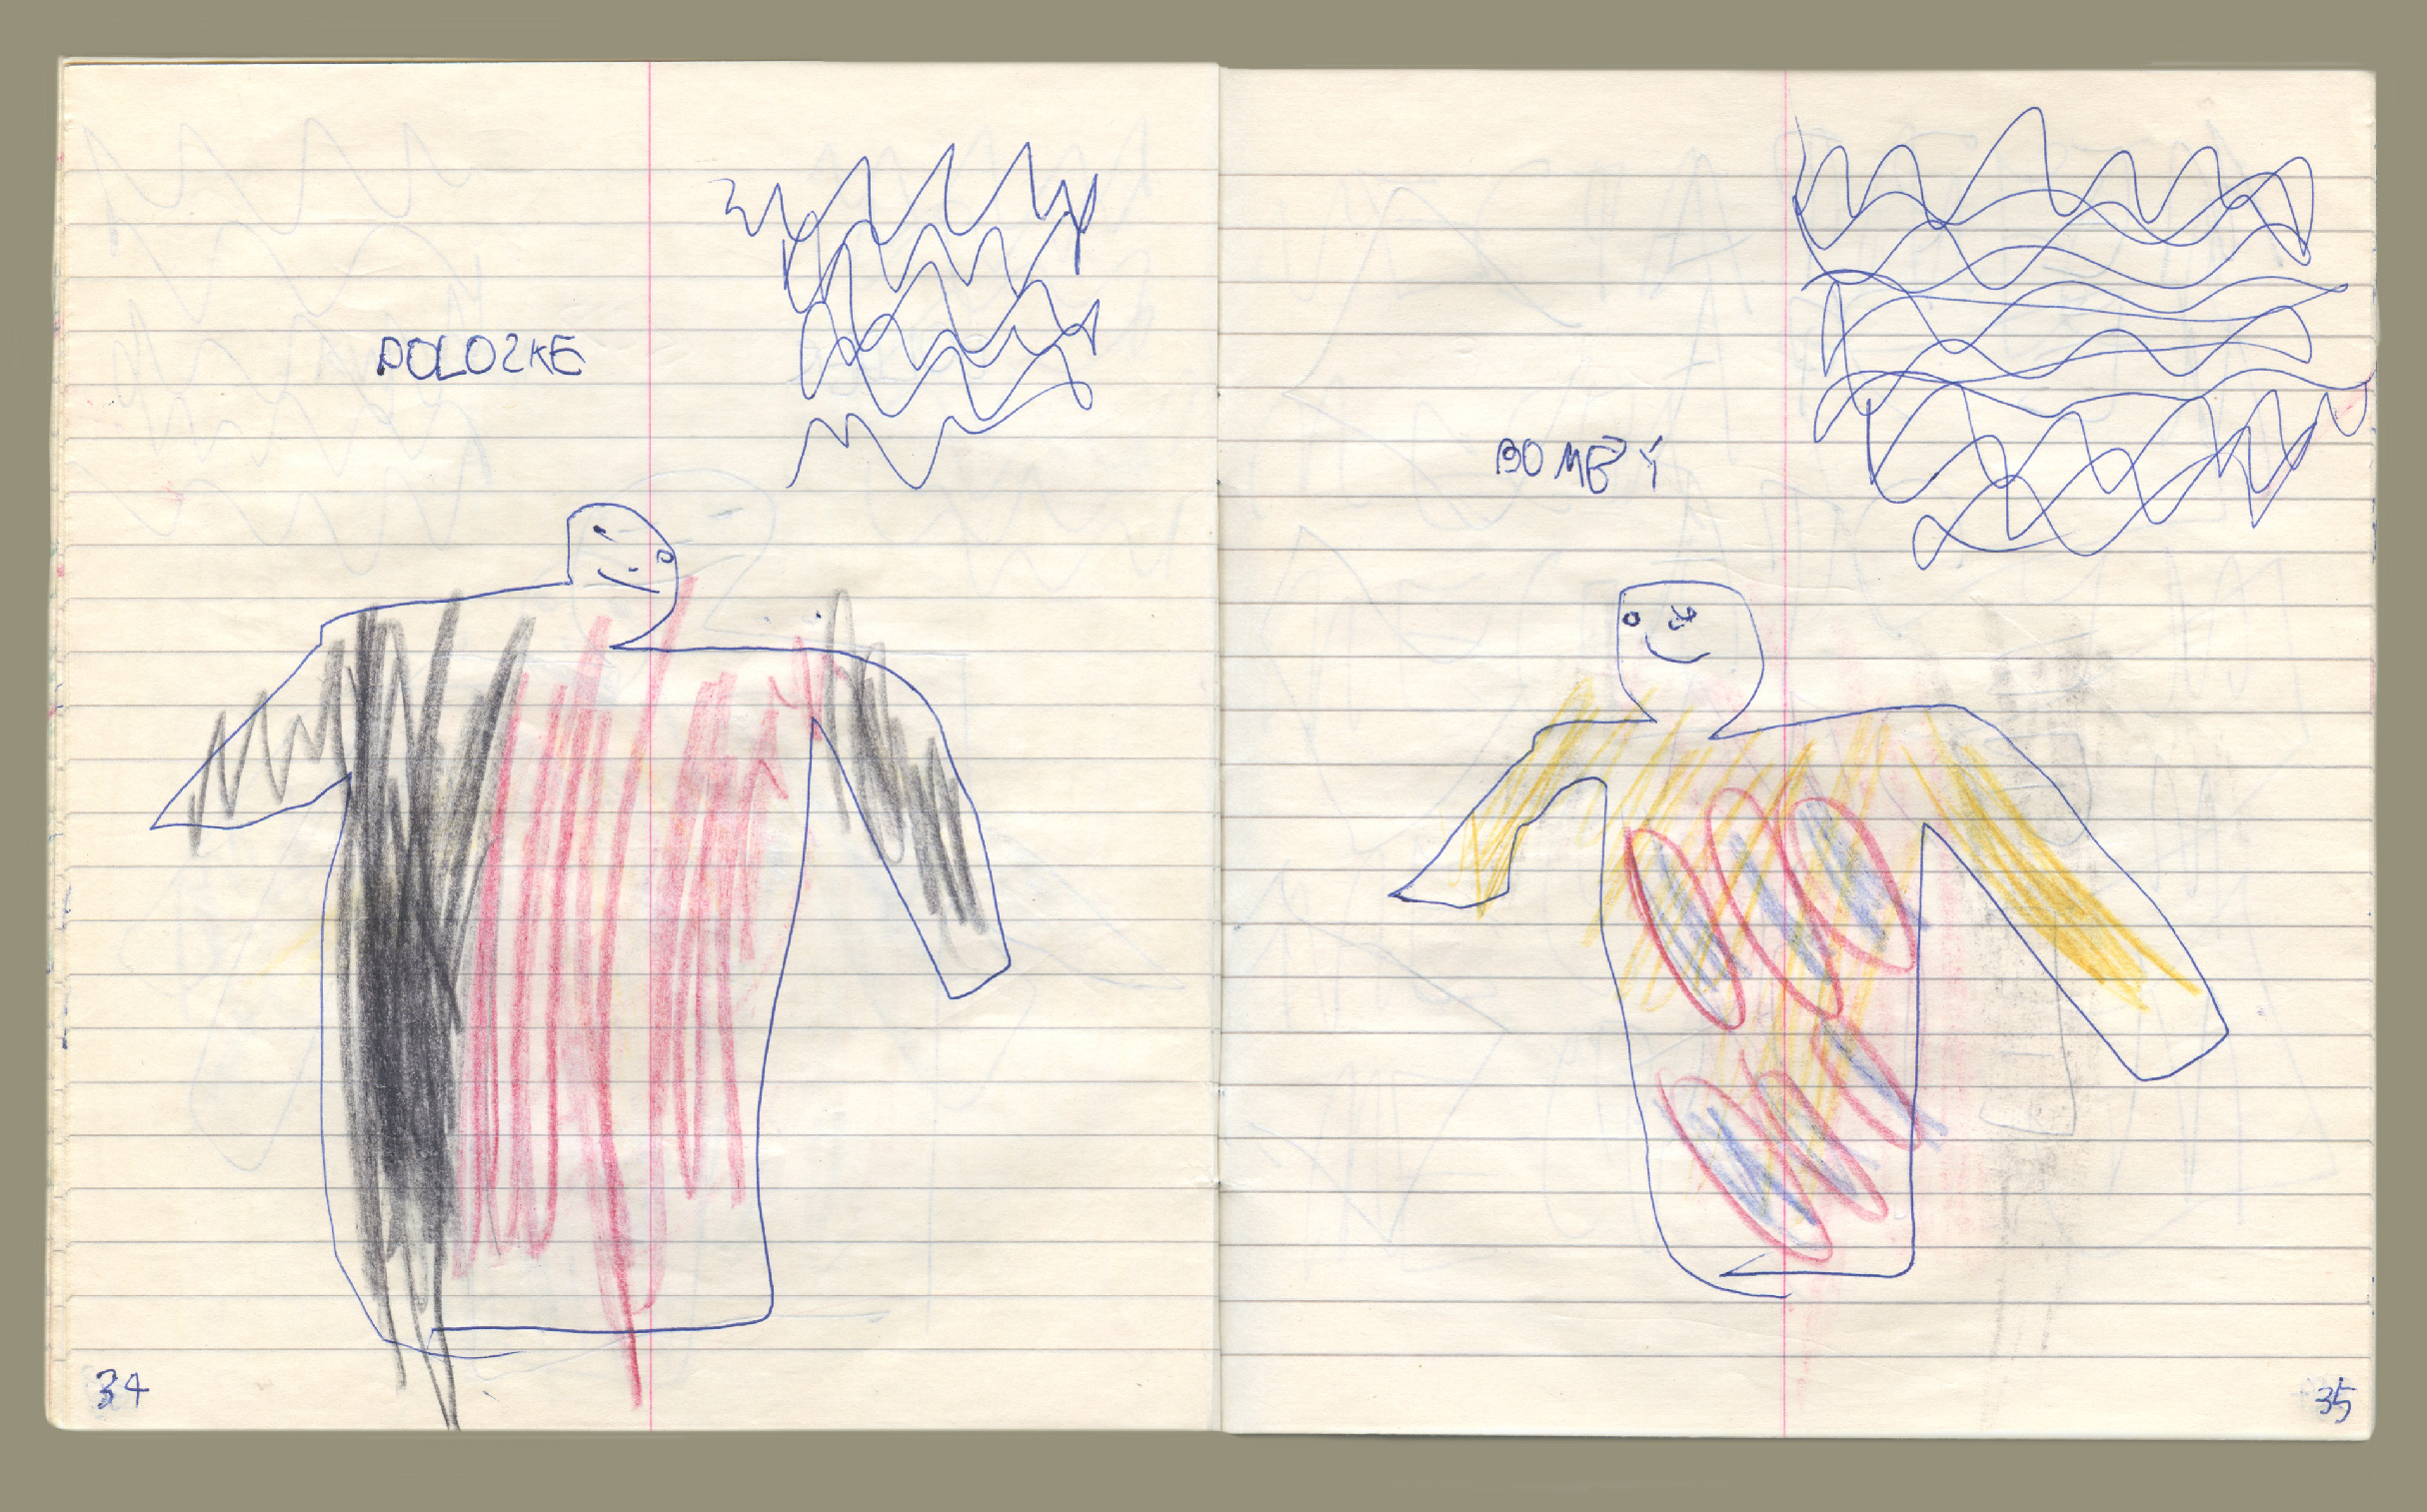 POLOZKE
34
BOMBY
35